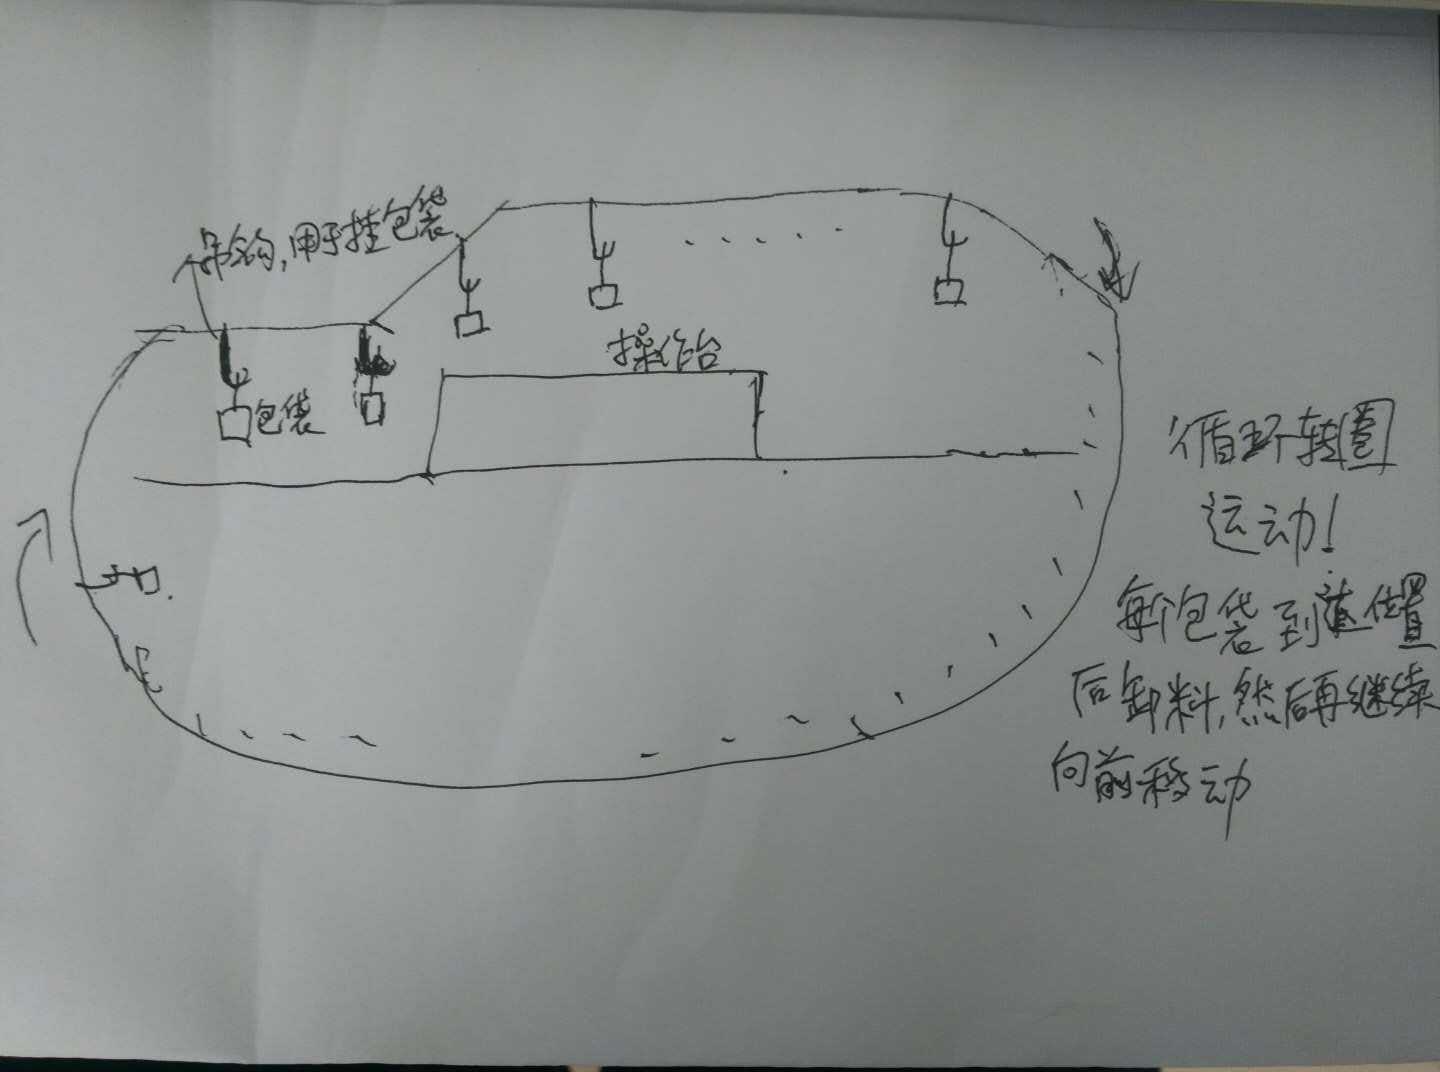 吊钩,用于挂包袋.
操作台
包袋
循环转圈
运动!
每个包袋到达位置
后卸料,然后再继续
向前移动